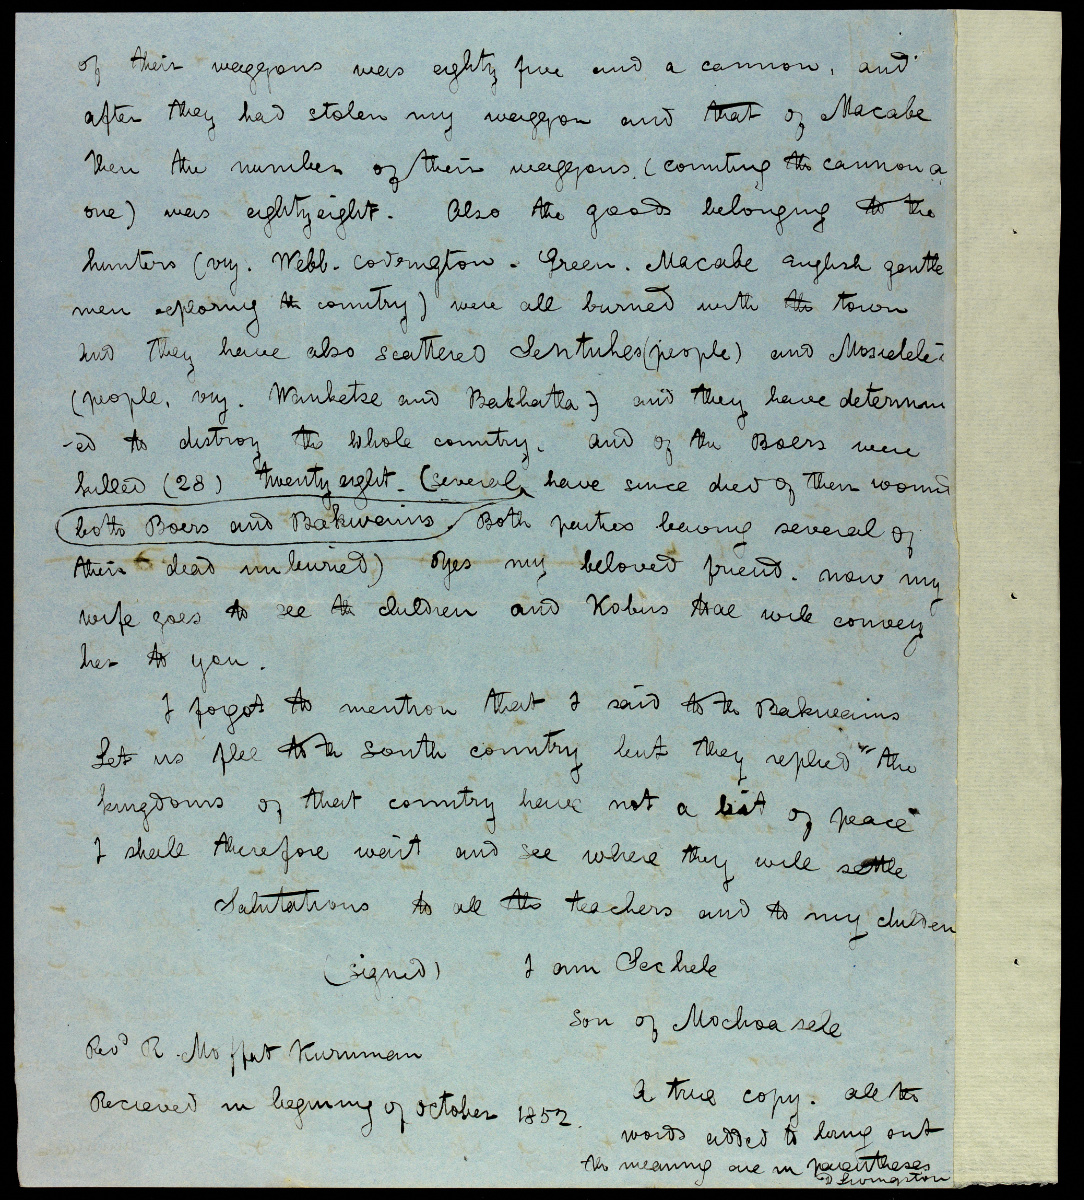 of their waggons was eighty five and a cannon, and
after they had stolen my waggon and that of Macabe
then the number of their waggons (counting the cannon a
one) was eightyeight. Also the goods belonging to the
hunters (viz. Webb. Codrington. Green. Macabe English gentle
men exploring the country) were all burned with the town
and they have also scattered Sentuhes(people) and Mosielele's
(people, viz. Wanketse and Bakhatla) and they have determin
-ed to distroy the whole country. and of the Boers were
killed (28) twenty eight. (several have since died of their wound
both Boers and Bakwains. Both parties leaving several of
their dead unburied) O yes my beloved friend. now my
wife goes to see the children and Kobus Hae will convey
her to you.
I forgot to mention that I said to the Bakwains
Let us flee to the South country but they replied "the
kingdoms of that country have not a bit of peace"
I shall therefore wait and see where they will settle
Salutations to all the teachers and to my children
(signed) I am Sechele
Son of Mochoasele
Revd R. Moffat Kuruman
Recieved in begining of October 1852.
A true copy. all the
words added to bring out
the meaning are in parentheses
D Livingston